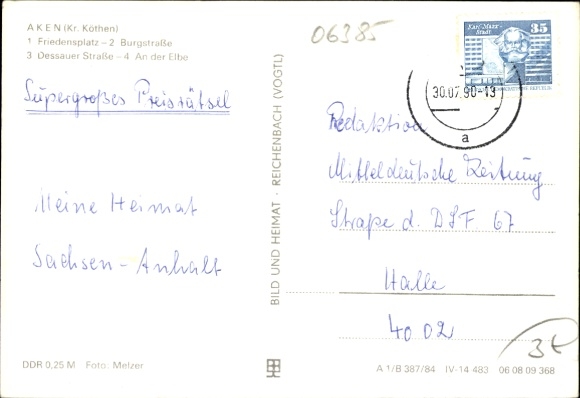 AKEN (Kr. Köthen)
1 Friedensplatz – 2 Burgstraße
3 Dessauer Straße – 4 An der Elbe
06385
Supergroßes Preisrätsel
Meine Heimat
Sachsen-Anhalt
BILD UND HEIMAT · REICHENBACH (VOGTL)
Karl-Marx-Stadt
35
30.07.90-13
a
Redaktion
Mitteldeutsche Zeitung
Straße d. DSF 67
Halle
4002
3t
DDR 0,25 M Foto: Melzer
A 1/B 387/84 IV-14-483 06 08 09 368